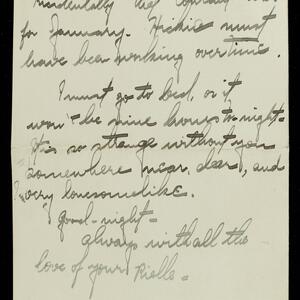 for January. Hickie must
have been working overtime.
I must go to bed, or it
won't be nine hours to-night.
It's so strange without you
somewhere near, dear, and
very lonesomelike.
Good-night -
Always with all the
love of your Rielle -